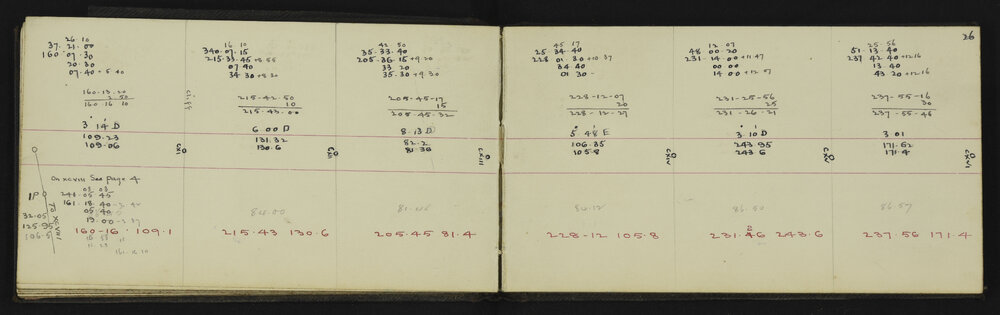 26
26 10
37.21.00
160.07.30
20.30
07.40 + 5 40
160.13.20
2 50
160 16 10
3° 14' D
109.23
109.06
CXI
On XCVIII See page 4
03 03
241.05 45
161.18.40
05.40
13.00
1P
TO XCVIII
32.05
125.95
106.5
160-16 109.1
16 10
340.07.15
215.33.45 + 8 55
07 40
34 30 + 8 30
215-42.50
10
215-43.00
6 00 D
131.32
130.6
CXII
215.43 130.6
42 50
35.33.40
205.36.15 + 9 20
33 20
35.30 + 9 30
205-45-17
15
205.45-32
8.13 D
82.2
81.36
CXIII
205.45 81.4
45 17
25 34 40
228 01 30 + 10 37
34 40
01 30
228-12-07
20
228-12-27
5° 48' E
106.35
105.8
CXIV
84.12
228-12 105.8
12 07
48 00 20
231.14.00 + 11 47
00 00
14 00 + 12 57
231-25-56
25
231-26-21
3.10 D
243 95
243 6
CXV
86.50
231.26 243.6
25 56
51.13 40
237 42 40 + 12.16
13 40
43 20 + 12 16
237-55-16
30
237-55-46
3 01
171.62
171.4
CXVI
86 57
237.56 171.4